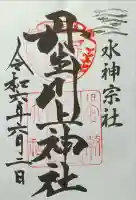 水神宗社
丹生川上神社
令和六年六月二日